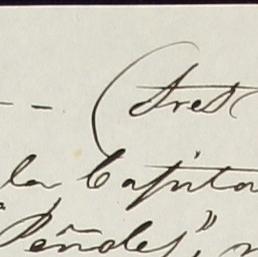 -- (tres
la Capita
"Peñoles",